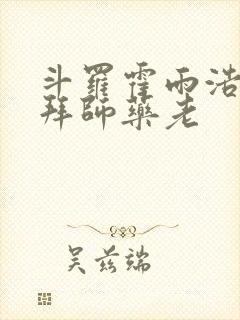 斗羅霍雨浩
拜師藥老
吴兹端